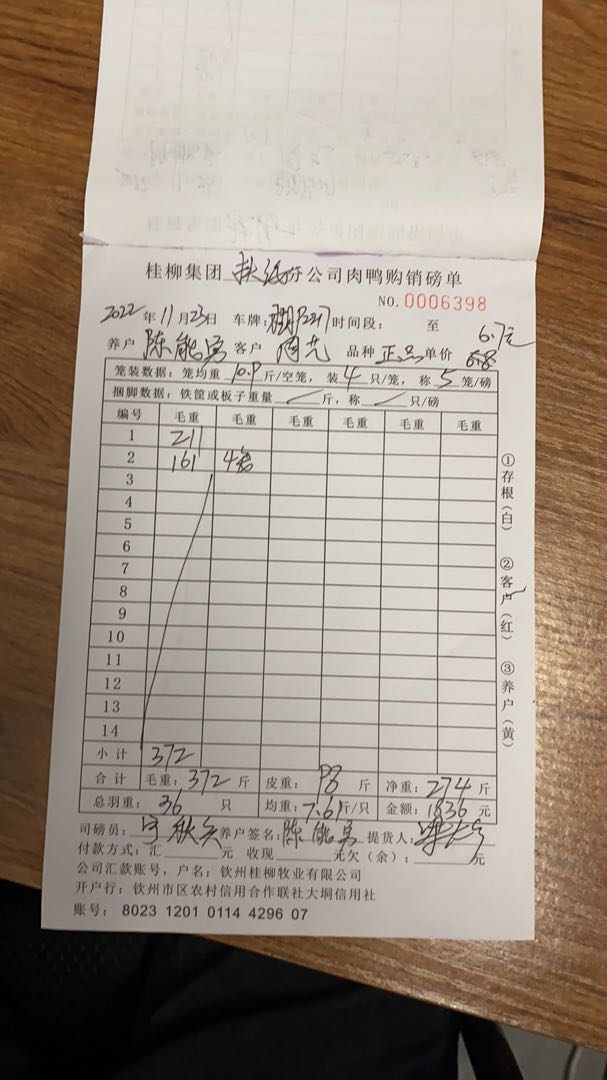 桂柳集团 分公司肉鸭购销磅单
NO.0006398
2022年11月23日 车牌: 时间段: 至 6.7元
养户 陈能勇 客户 品种 正品 单价
笼装数据: 笼均重 10.9 斤/空笼, 装 4 只/笼, 称 5 笼/磅
捆脚数据: 铁筐或板子重量 / 斤, 称 / 只/磅
编号 毛重 毛重 毛重 毛重 毛重 毛重
1 211
2 161 4笼
3
4
5
6
7
8
9
10
11
12
13
14
小计 372
合计 毛重: 372 斤 皮重: 98 斤 净重: 274 斤
总羽重: 36 只 均重: 7.61 斤/只 金额: 1836 元
司磅员: 养户签名: 陈能勇 提货人:
付款方式: 汇 元 收现 元欠(余): 元
公司汇款账号, 户名: 钦州桂柳牧业有限公司
开户行: 钦州市区农村信用合作联社大垌信用社
账号: 8023 1201 0114 4296 07
①存根(白)
②客户(红)
③养户(黄)